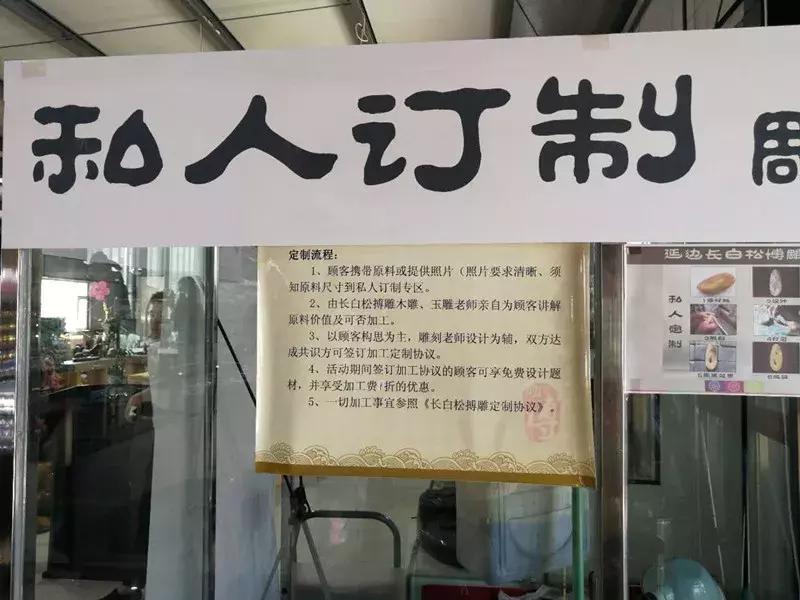 私人订制
定制流程：
1、顾客携带原料或提供照片（照片要求清晰、须
知原料尺寸到私人订制专区。
2、由长白松搏雕木雕、玉雕老师亲自为顾客讲解
原料价值及可否加工。
3、以顾客构思为主，雕刻老师设计为辅，双方达
成共识方可签订加工定制协议。
4、活动期间签订加工协议的顾客可享免费设计题
材，并享受加工费7折的优惠。
5、一切加工事宜参照《长白松搏雕定制协议》。
延边长白松搏雕
私人定制